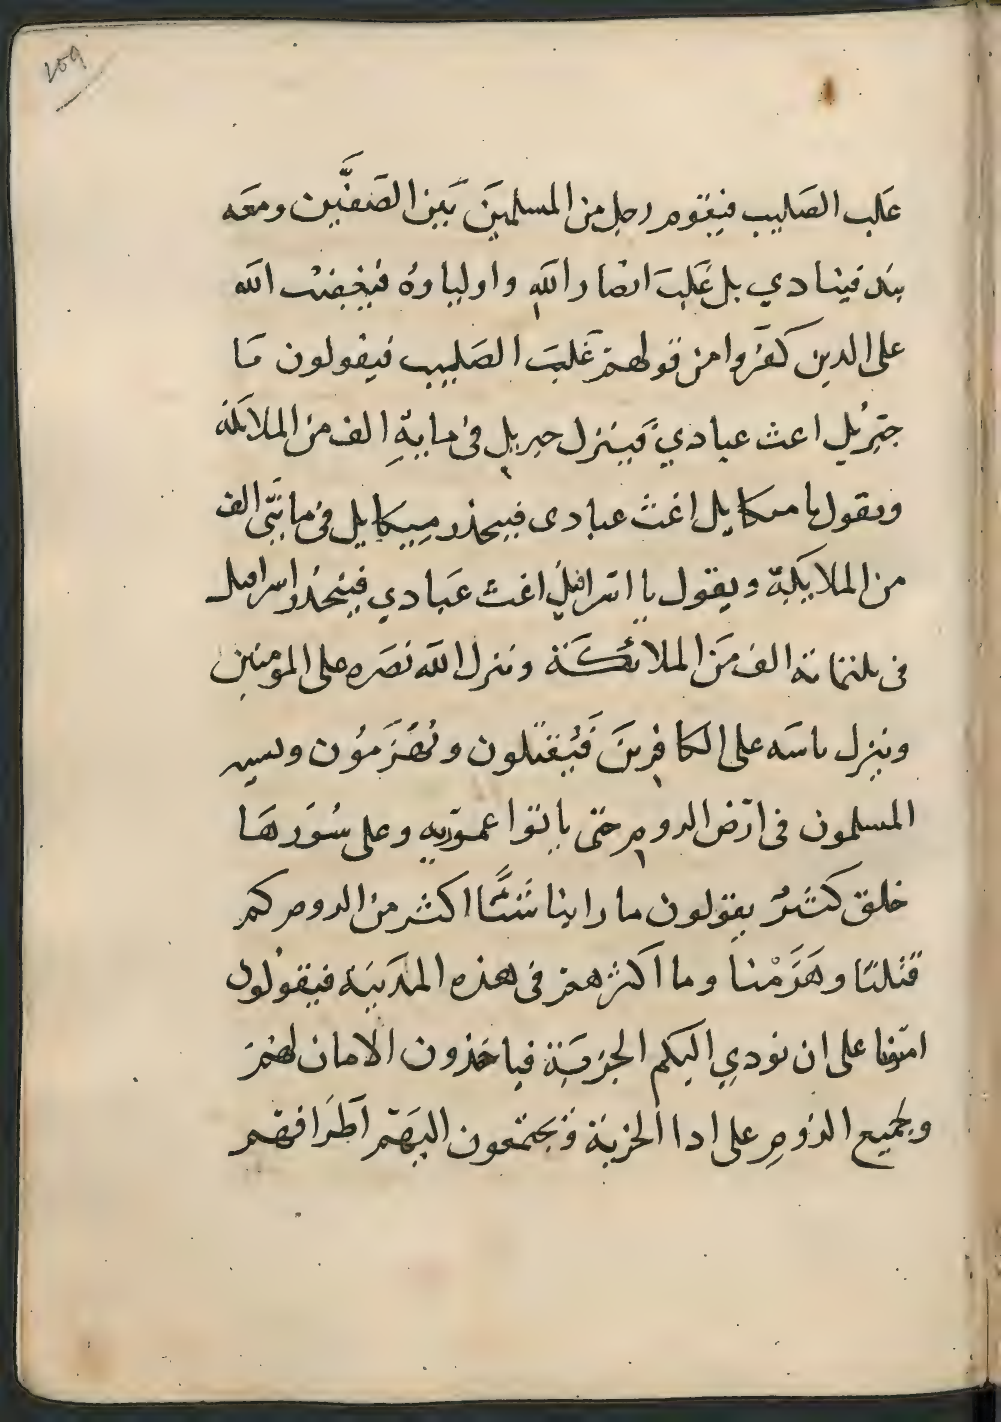 259
غلب الصليب فيقوم رجل من المسلمين بين الصفين ومعه
بند فينادي بل غلب انصار الله واولياوه فيغضب الله
على الدين كفروا من قولهم غلب الصليب فيقولون مَا
جبريل اعث عبادي فينزل جبريل في ماية الف من الملائكة
ويقول يا ميكايل اغث عبادى فينحدر ميكايل في مائتي الف
من الملايكة ويقول يا اسرافيل اغث عبادي فينحدر اسرافيل
فى ثلثمائة الف من الملائكة وننزل الله نصره على المومنين
وينزل باسه على الكافرين فيقتلون ويهزمون ويسير
المسلمون فى ارض الروم حتى ياتوا عمورية وعلى سورها
خلق كثير يقولون ما راينا شيئًا اكثر من الروم كم
قتلنا وهزمنا وما اكثرهم فى هذه المدينة فيقولون
امنونا على ان نودي اليكم الجزية فياخذون الامان لهم
ولجميع الروم على ادا الجزية وتجتمعون اليهم اطرافهم